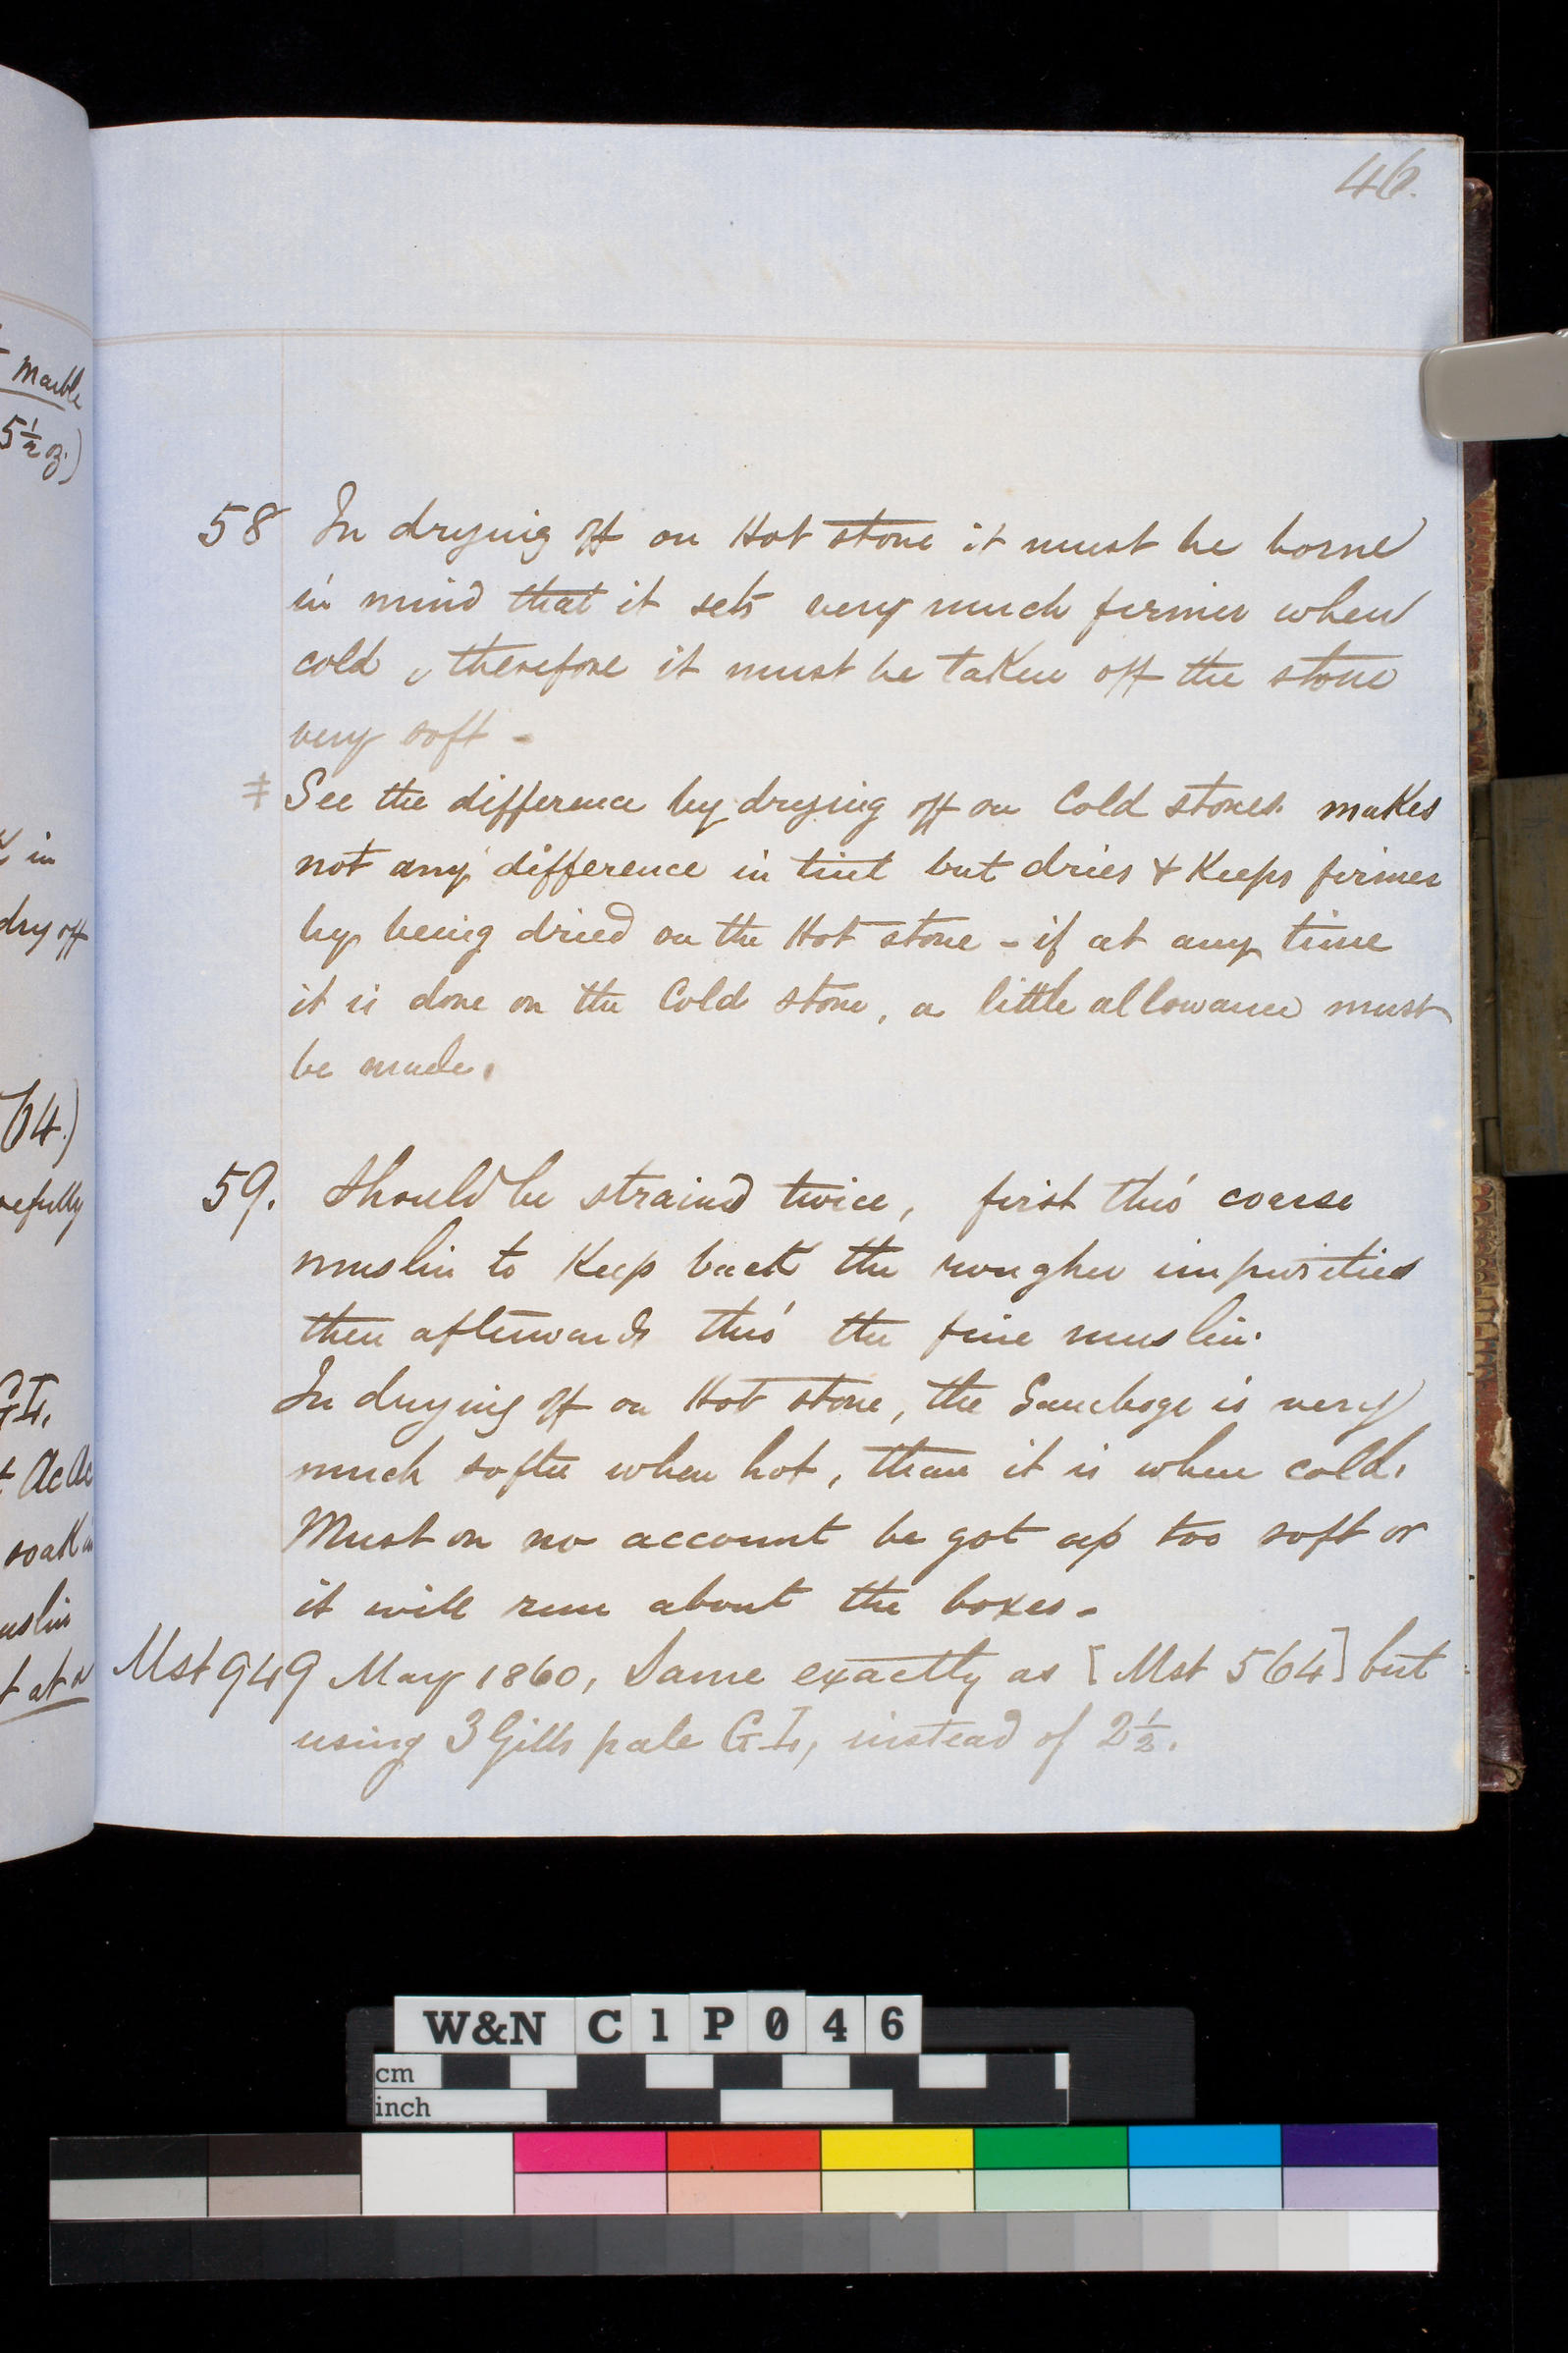 46.
marble
5½ oz.)
in
dry off
64.)
refully
G I,
soak in
uslin
t at a
58 In drying off on Hot stone it must be borne
in mind that it sets very much firmer when
cold, therefore it must be taken off the stone
very soft -
ǂ See the difference by drying off on Cold stones. makes
not any difference in tint but dries & Keeps firmer
by being dried on the Hot stone - if at any time
it is done on the Cold stone, a little allowance must
be made.
59. Should be strained twice, first thro' coarse
muslin to Keep back the rougher impurities
then afterwards thro' the fine muslin.
In drying off on Hot stone, the Gamboge is very
much softer when hot, than it is when cold.
Must on no account be got up too soft or
it will run about the boxes.
Mst 949 May 1860, Same exactly as [Mst 564] but
using 3 Gills pale G I, instead of 2½.
W&N C1P046
cm
inch